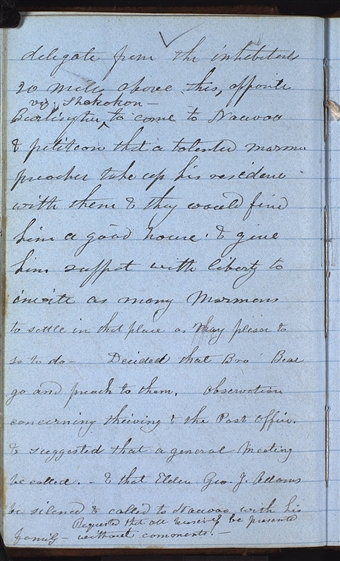 delegate from the inhabitants
20 miles above this, opposite
viz. Shokokon—
Burlington, to come to Nauvoo
& petition that a talented mormon
preacher take up his residence
with them & they would find
him a good house & give
him support with liberty to
invite as many Mormons
to settle in that place as they please to
so to do— Decided that Bro Bear
go and preach to them. Observation
concerning thieving & the Post Office.
& suggested that a general Meeting
be called.— & that Elder Geo J. Adams
be silenced & called to Nauvoo with his
Requested that all be presented
family— without comments.—